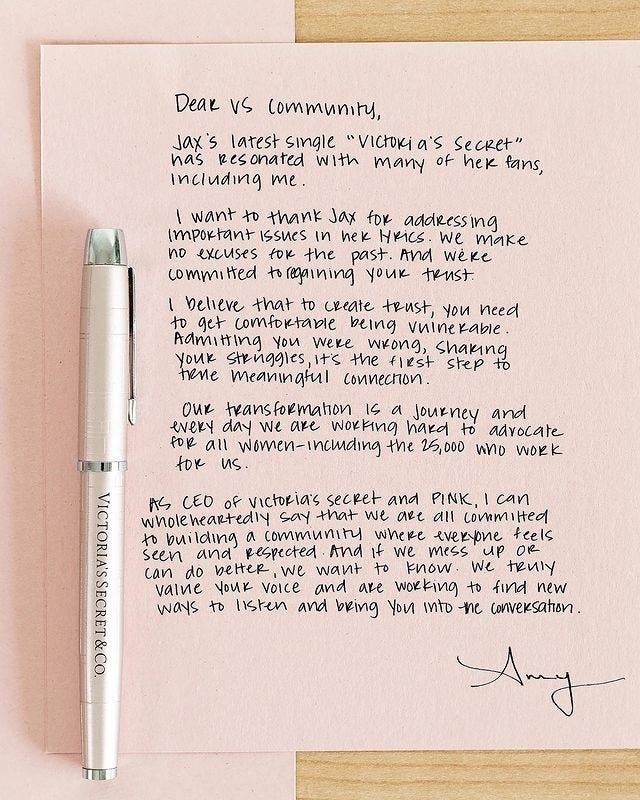 Dear VS Community,
Jax's latest single "Victoria's Secret"
has resonated with many of her fans,
including me.
I want to thank Jax for addressing
important issues in her lyrics. We make
no excuses for the past. And we're
committed to regaining your trust.
I believe that to create trust, you need
to get comfortable being vulnerable.
Admitting you were wrong, sharing
your struggles, it's the first step to
true meaningful connection.
Our transformation is a journey and
every day we are working hard to advocate
for all women-including the 25,000 who work
for us.
As CEO of Victoria's Secret and PINK, I can
wholeheartedly say that we are all committed
to building a community where everyone feels
seen and respected. And if we mess up or
can do better, we want to know. We truly
value your voice and are working to find new
ways to listen and bring you into the conversation.
Amy
VICTORIA'S SECRET & CO.